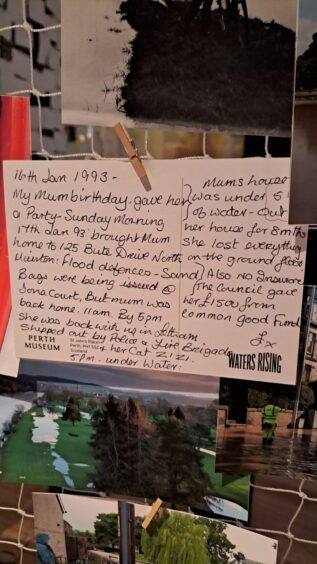 16th Jan 1993 -
My Mum birthday. gave her
a Party - Sunday Morning
17th Jan 93 brought Mum
home to 125 Bute Drive North
Muirton: Flood defences - Sand
Bags were being issued @
Jona Court, But mum was
back home. 11am. By 5pm
she was back with us in Letham
Shipped out by Police & Fire Brigade
& her Cat ZiZi.
5pm. under Water.
Mums house
was under 5'
of water - Out
her house for 8mths
she lost everything
on the ground floor
Also no Insurance
The Council gave
her £1500 from
Common Good Fund
x
PERTH
MUSEUM
WATERS RISING